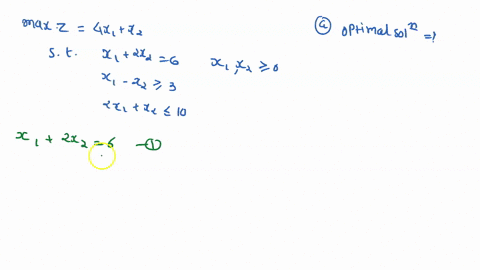 max Z = 4x₁ + x₂
s.t. x₁ + 2x₂ = 6 x₁, x₂ ≥ 0
x₁ - x₂ ≥ 3
2x₁ + x₂ ≤ 10
ⓐ optimal solⁿ = ?
x₁ + 2x₂ = 6 —①